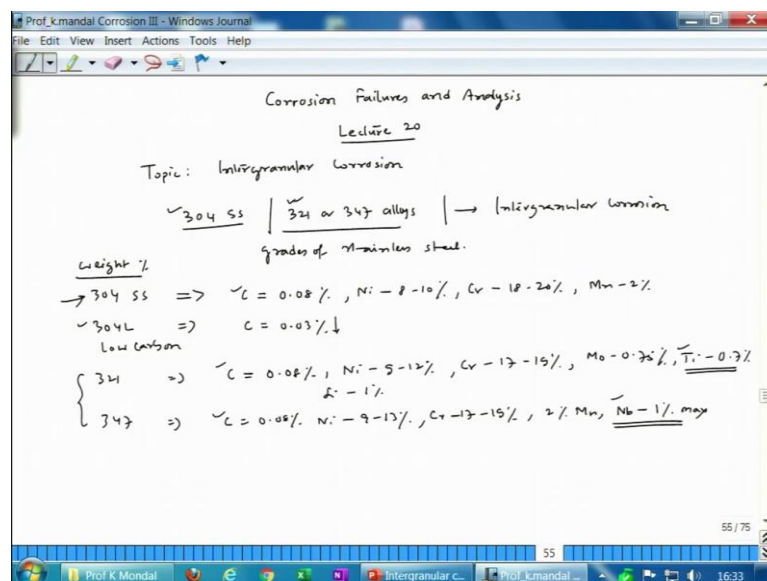 Prof_k.mandal Corrosion III - Windows Journal
File Edit View Insert Actions Tools Help
Corrosion Failures and Analysis
Lecture 20
Topic: Intergranular Corrosion
304 SS | 321 or 347 alloys | → Intergranular Corrosion
grades of stainless steel.
Weight %
→ 304 SS => C = 0.08 %, Ni - 8-10 %, Cr - 18-20 %, Mn - 2 %
304L => C = 0.03 % ↓
Low Carbon
321 => C = 0.08 %, Ni - 9-12 %, Cr - 17-19 %, Mo - 0.75 %, Ti - 0.7 %
Si - 1 %
347 => C = 0.08 %. Ni - 9-13 %, Cr - 17-19 %, 2 % Mn, Nb - 1 % max
55 / 75
55
Prof K Mondal
Intergranular c...
Prof_k.mandal ...
16:33